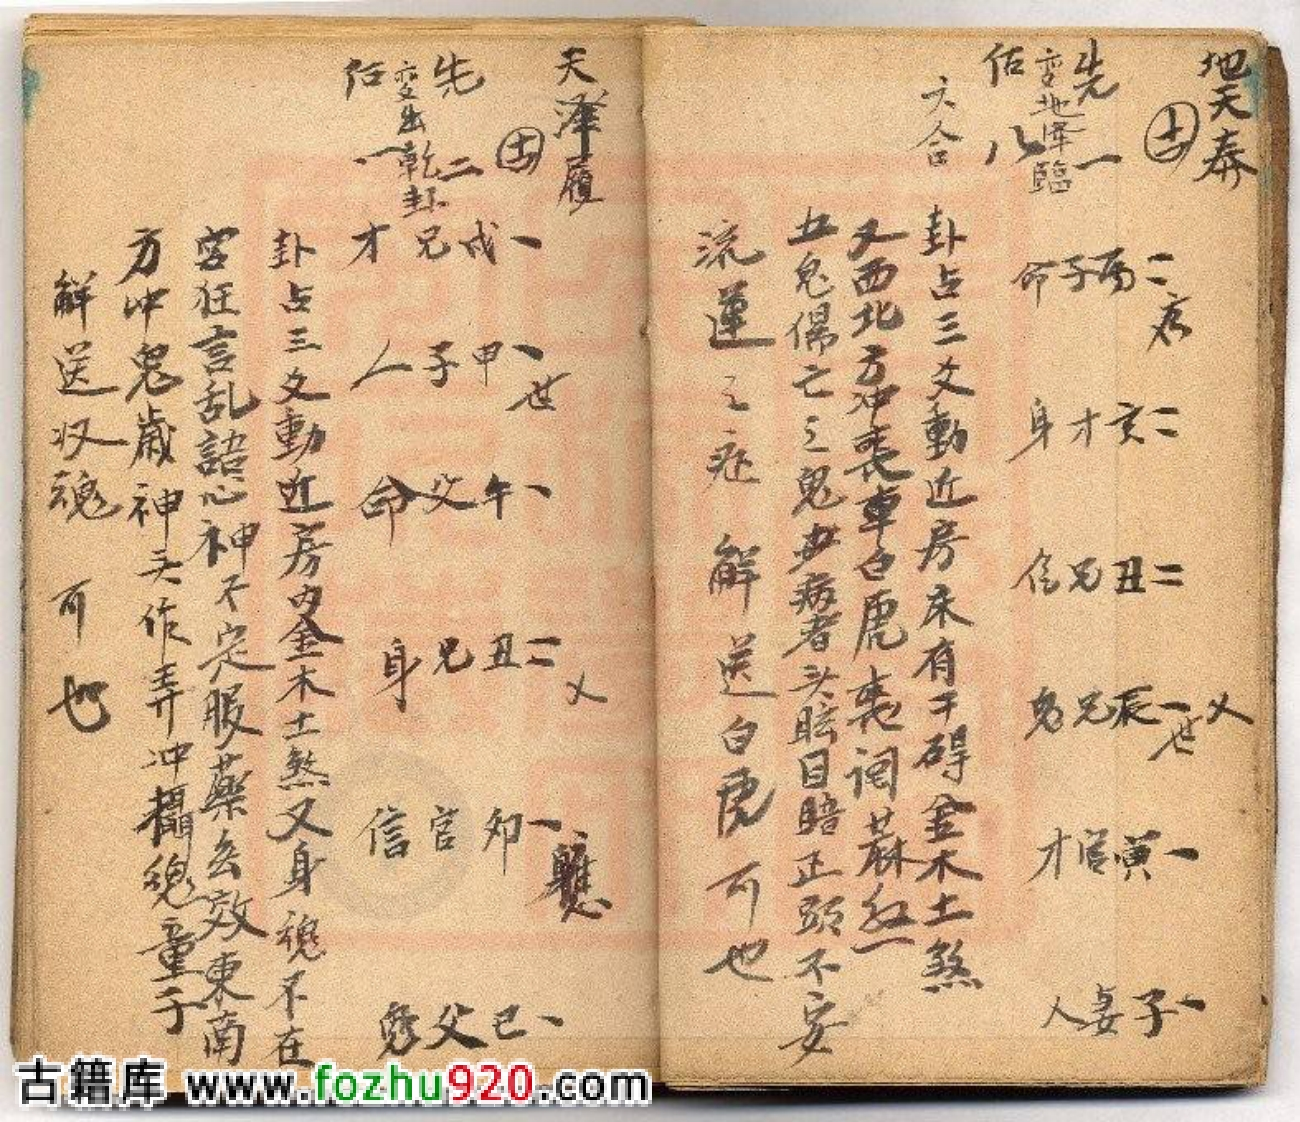 地天泰
十一
先一
变地泽臨
估八
六合
酉子命
亥才身
丑兄信
辰兄 世 乂
寅官才
子妻人
卦占三爻動近房床有干碍金木土煞
又西北方冲丧車白虎丧
五鬼傷亡之鬼 病者头眩目暗正頭不安
流連之症 解送白虎可也
天澤履
先二
变出乾卦
估一
戌兄才
申子人 世
午父命
丑兄身 乂
卯官信 應
巳父
卦占三爻動近房内金木土煞又身魂不在
宮狂言乱語心神不定服藥無效東南
方冲鬼歲神头作弄冲攝魂童子
解送收魂 可也
古籍库 www.fozhu920.com